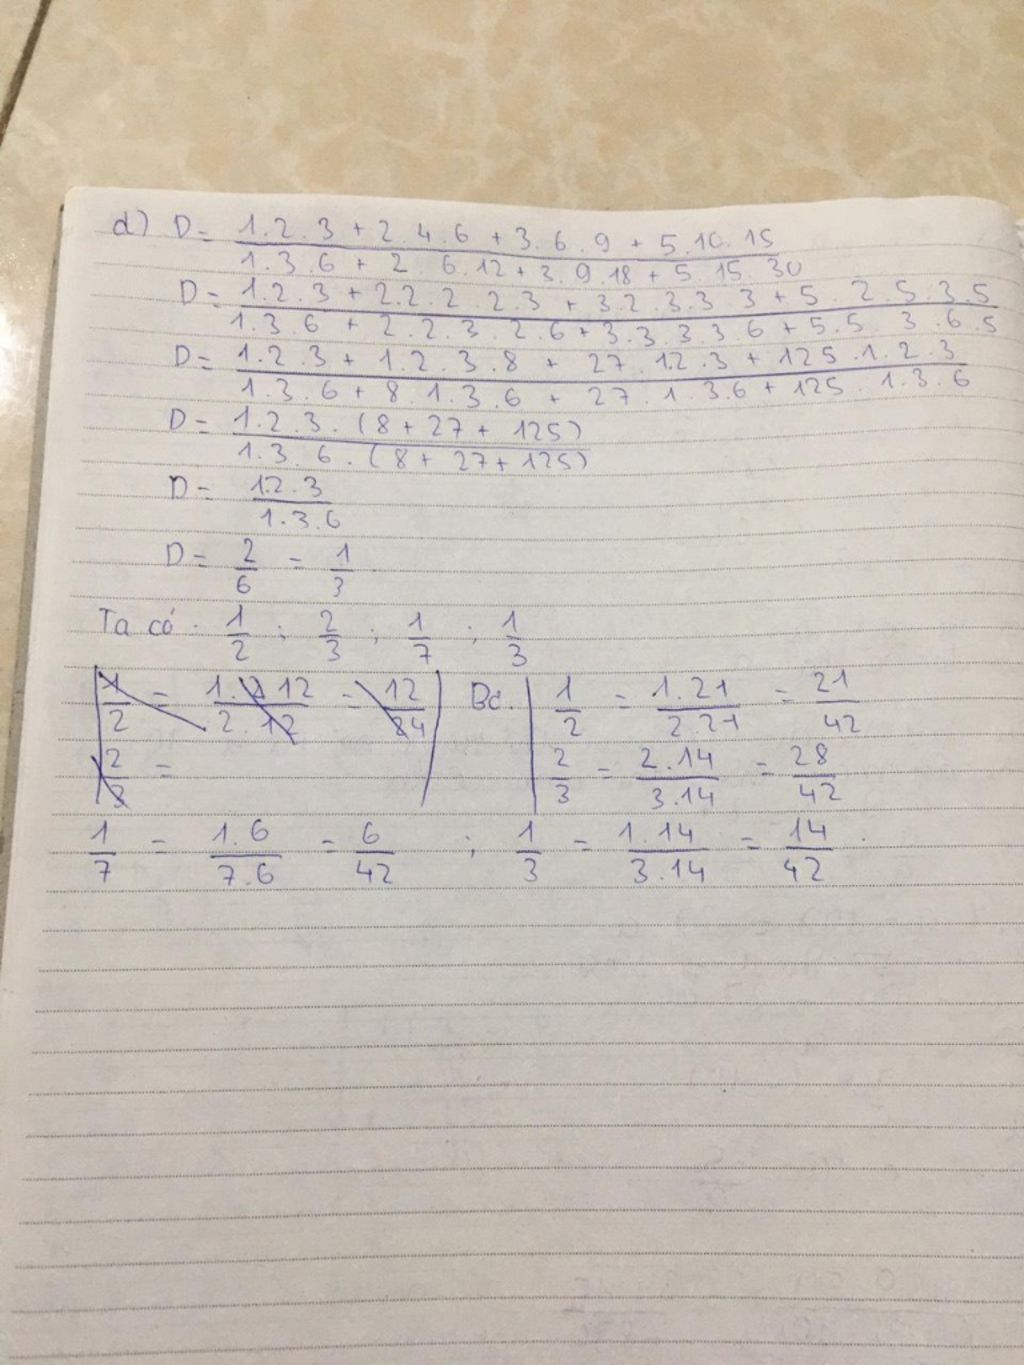 d) D = 1.2.3 + 2.4.6 + 3.6.9 + 5.10.15 / 1.3.6 + 2.6.12 + 3.9.18 + 5.15.30
D = 1.2.3 + 2.2.2.2.3 + 3.2.3.3.3 + 5.2.5.3.5 / 1.3.6 + 2.2.3.2.6 + 3.3.3.3.6 + 5.5.3.6.5
D = 1.2.3 + 1.2.3.8 + 27.1.2.3 + 125.1.2.3 / 1.3.6 + 8.1.3.6 + 27.1.3.6 + 125.1.3.6
D = 1.2.3.(8 + 27 + 125) / 1.3.6.(8 + 27 + 125)
D = 1.2.3 / 1.3.6
D = 2/6 = 1/3
Ta có: 1/2 ; 2/3 ; 1/7 ; 1/3
1/2 = 1.12 / 2.12 = 12/24 1/2 = 1.21 / 2.21 = 21/42
2/3 = 2/3 = 2.14 / 3.14 = 28/42
1/7 = 1.6 / 7.6 = 6/42 ; 1/3 = 1.14 / 3.14 = 14/42.